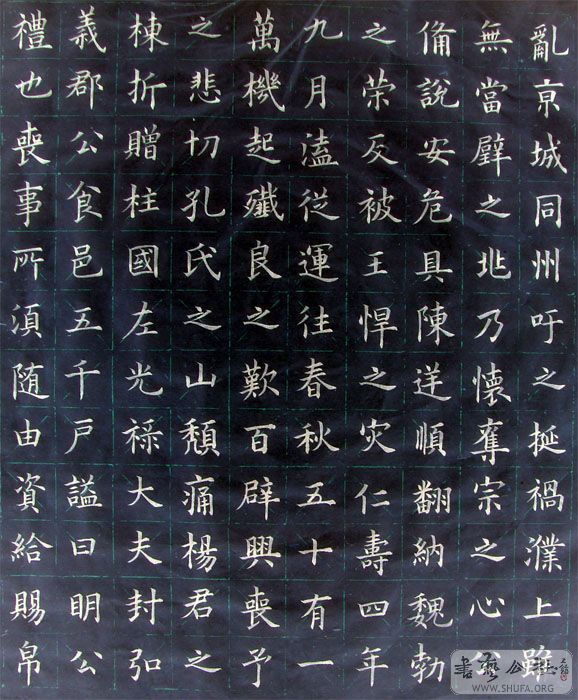 亂京城同州吁之挺禍濮上雖
無當璧之兆乃懷奪宗之心公
俻說安危具陳逆順翻納魏勃
之榮反被王悍之灾仁壽四年
九月溘從運往春秋五十有一
萬機起殲良之歎百辟興喪予
之悲切孔氏之山頹痛楊君之
棟折贈柱國左光祿大夫封弘
義郡公食邑五千戶謚曰明公
禮也喪事所須随由資給賜帛
書藝公社
WWW.SHUFA.ORG